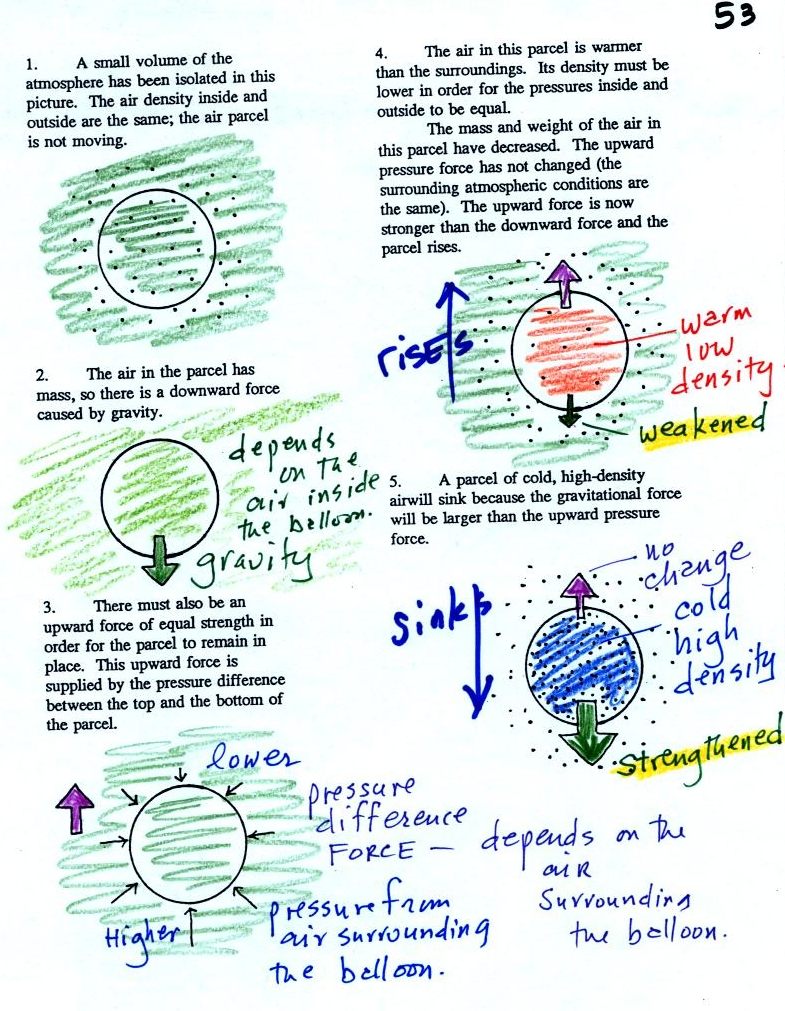 53
1. A small volume of the
atmosphere has been isolated in this
picture. The air density inside and
outside are the same; the air parcel
is not moving.
2. The air in the parcel has
mass, so there is a downward force
caused by gravity.
depends
on the
air inside
the balloon.
gravity
3. There must also be an
upward force of equal strength in
order for the parcel to remain in
place. This upward force is
supplied by the pressure difference
between the top and the bottom of
the parcel.
lower
pressure
difference
FORCE — depends on the
air
surrounding
the balloon.
Higher
pressure from
air surrounding
the balloon.
4. The air in this parcel is warmer
than the surroundings. Its density must be
lower in order for the pressures inside and
outside to be equal.
The mass and weight of the air in
this parcel have decreased. The upward
pressure force has not changed (the
surrounding atmospheric conditions are
the same). The upward force is now
stronger than the downward force and the
parcel rises.
rises
warm
low
density
weakened
5. A parcel of cold, high-density
airwill sink because the gravitational force
will be larger than the upward pressure
force.
sinks
no
change
cold
high
density
strengthened